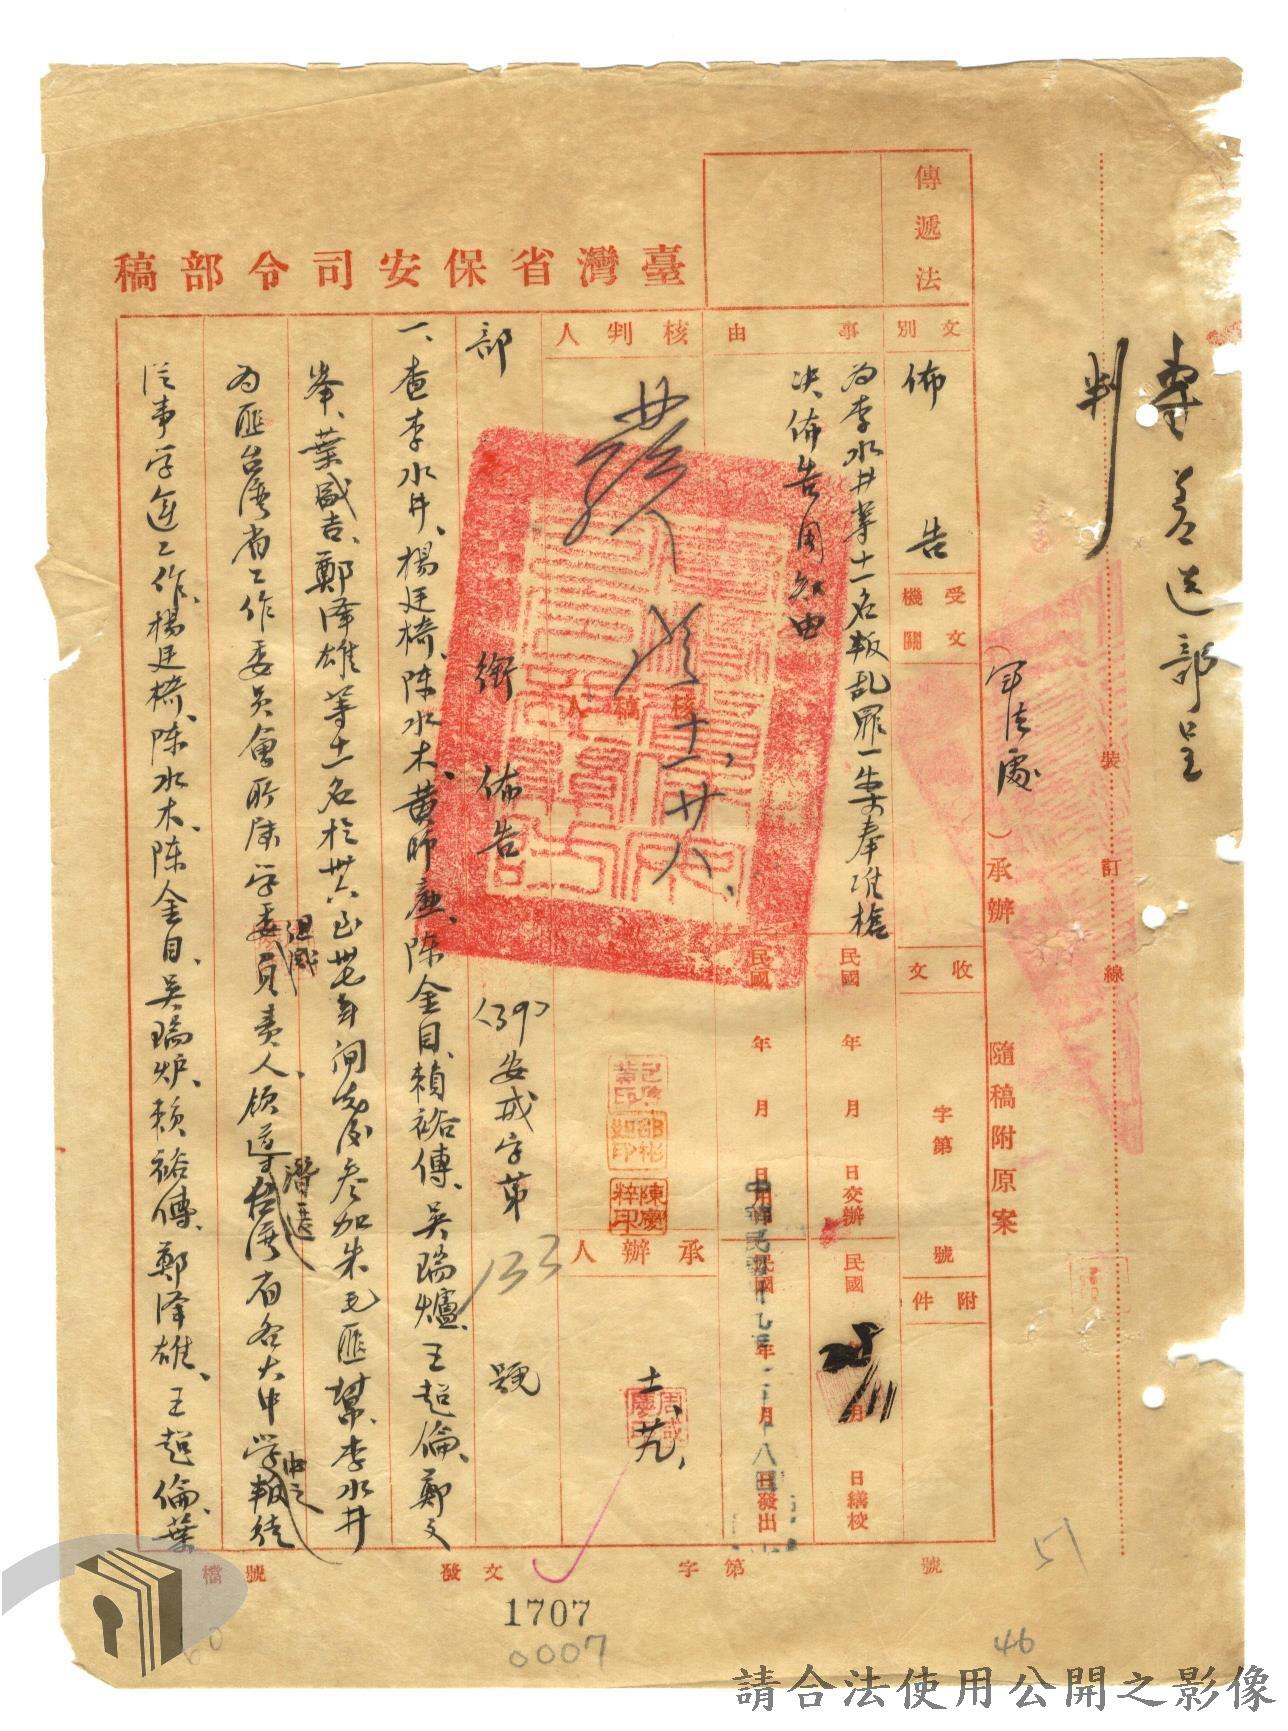 專差送部呈
判
裝 訂 線
(軍法處)承辦 隨稿附原案
傳遞法
臺灣省保安司令部稿
文別
佈告
受文機關
收文 字第 號
附件
事由
為李水井等十一名叛乱罪一案奉准槍
決佈告周知由
民國 年 月 日交辦
民國 年 月 日繕校
民國 年 月 日
民國 年 月 日發出
核判人
核稿人
十一、廿八、
承辦人
陳慶粹印
部 銜 佈告 (39)安戒字第 133 號
一、查李水井、楊廷椅、陳水木、黃師廉、陳金目、賴裕傳、吳瑞爐、王超倫、鄭文
峯、葉盛吉、鄭澤雄等十一名於卅六至卅七年間先後参加朱毛匪幫、李水井
為匪台湾省工作委員會所屬学委負責人、領導台湾省各大中学叛徒
潛匪
從事学運工作、楊廷椅、陳水木、陳金目、吳瑞炉、賴裕傳、鄭澤雄、王超倫、葉
檔號
發文 字第 號
1707
0007
46
51
請合法使用公開之影像